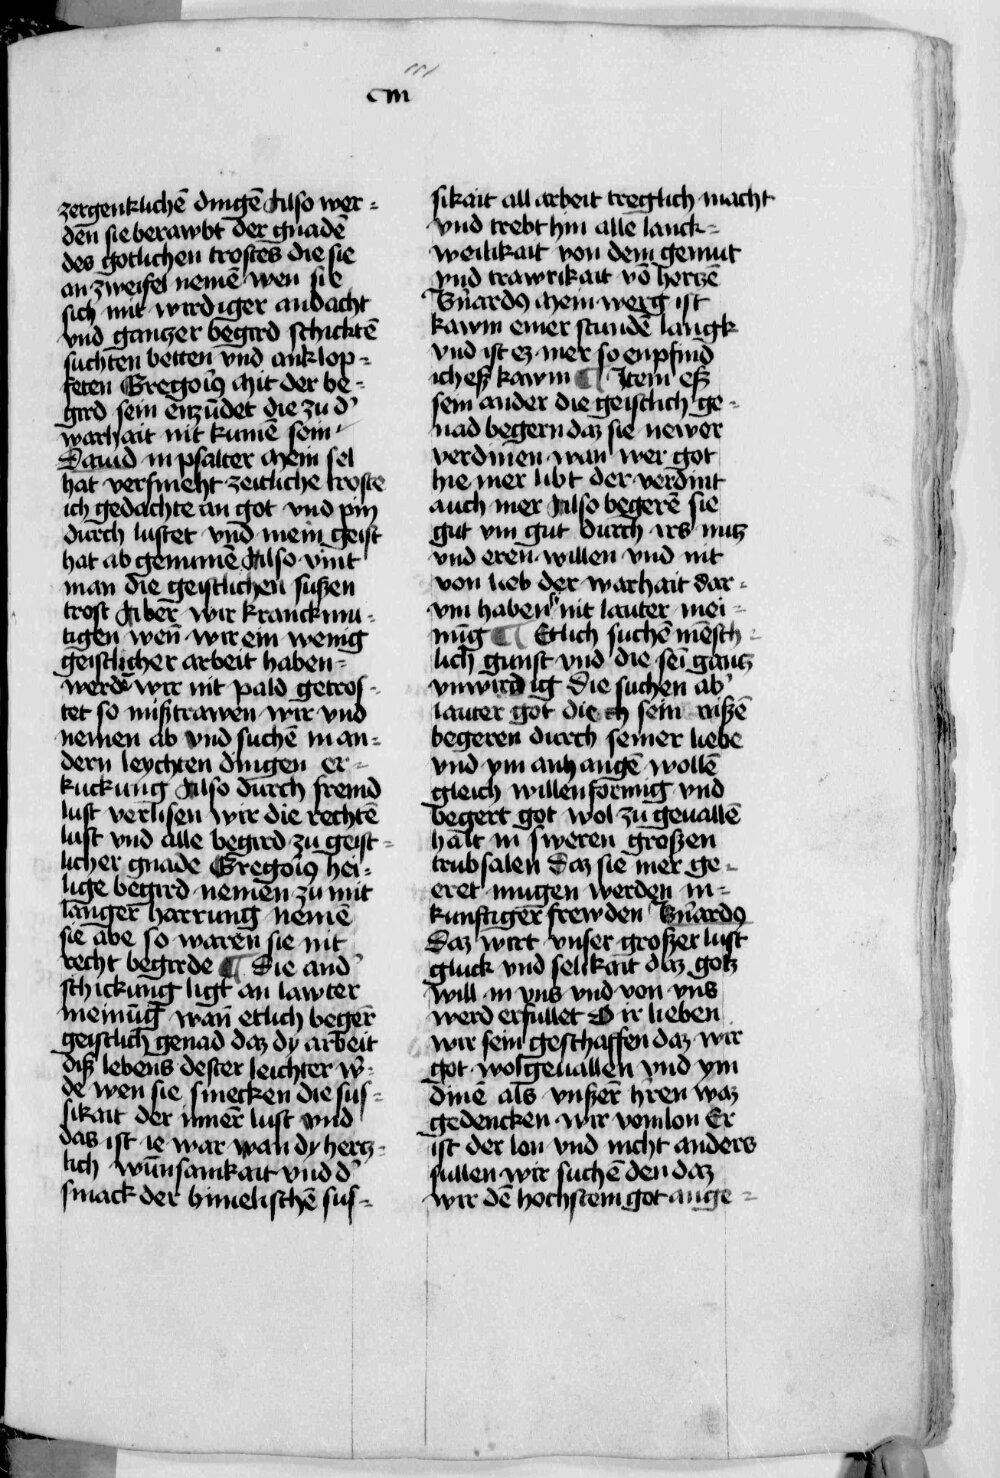 ciii
zergenklichē dingē Also wer=
den sie berawbt der gnadē
des gotlichen trostes die sie
an zweifel nemē wen sie
sich mit wirdiger andacht
vnd ganczer begird schicktē
suchten betten vnd anklop=
feten Gregoiꝰ Mit der be=
gird sein enzūdet die zu dʾ
warhait nit kumē sein
Dauid in psalter Mein sel
hat versmeht zeitliche troste
ich gedachte an got vnd pin
durch lustet vnd mein geist
hat ab genumē Also vint
man die geistlichen sußen
trost Aber wir kranckmu=
tigen wen̄ wir ein wenig
geistlicher arbeit haben=
werdē wir nit pald getros=
tet so mißtrawen wir vnd
nemen ab vnd suchē in an=
dern leychten dingen er=
kuckung Also durch fremd
lust verlisen wir die rechtē
lust vnd alle begird zu geist=
licher gnade Gregoiꝰ hei=
lige begird nemen zu mit
langer harrung nemē
sie abe so waren sie nit
recht begirde ¶ Die andʾ
schickung ligt an lawter
meinūg wan̄ etlich beger̄
geistlich genad daz dy arbeit
diß lebens dester leichter w̄=
de wen sie smecken die sus=
sikait der inner̄ lust vnd
das ist ie war wan dy hercz=
lich wunsamkait vnd dʾ
smack der himelischē sus=
sikait all arbeit treglich macht
vnd trebt hin alle lanck=
weilikait von dem gemut
vnd trawrikait vō herczē
Bn̄ardꝰ Mein werg ist
kawm einer stundē langk
vnd ist ez mer so enpfind
ich eß kawm ¶ Item eß
sein ander die geistlich ge=
nad begern daz sie newer
verdinen wan wer got
hie mer libt der verdint
auch mer Also begerē sie
gut vm gut durch irs nutz
vnd eren willen vnd nit
von lieb der warhait dar=
vm haben sʾ nit lauter mei=
nūg ¶ Etlich suchē mēsch=
lich gunst vnd die sēi gantz
vnwirdig Die suchen abʾ
lauter got die sein
begeren durch seiner liebe
vnd ym anhangē wollē
gleich willenformig vnd
begert got wol zu geuallē
halt in sweren großen
trubsalen daz sie mer ge=
eret mugen werden in=
kunftiger frewden Bn̄ardꝰ
Daz wirt vnser großer lust
gluck vnd selikait daz gotz
will in vns vnd von vns
werd erfullet O ir lieben
wir sein geschaffen daz wir
got wolgeuallen vnd ym
dinē als vnßerm hʾren waz
gedencken wir vom lon Er
ist der lon vnd nicht anders
sullen wir suchē den daz
wir dē hochstem got ange=